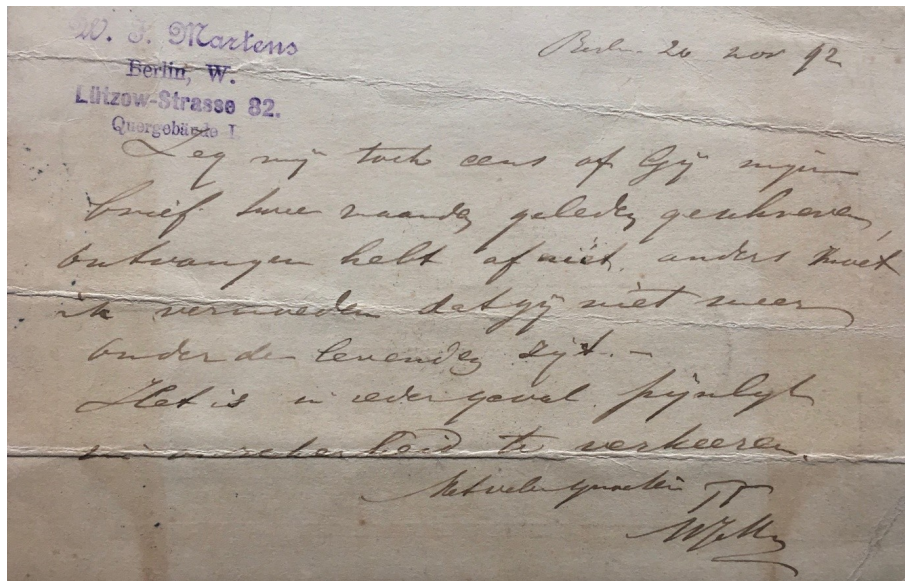 W. J. Martens
Berlin, W.
Lützow-Strasse 82.
Quergebäude I
Berlin 20 nov 92
Zeg mij toch eens of Gij mijn
brief twee maanden geleden geschreven,
ontvangen hebt of niet, anders moet
ik vermoeden dat gij niet meer
onder de levenden zijt. –
Het is in ieder geval pijnlijk
in onzekerheid te verkeeren.
Met vele groeten